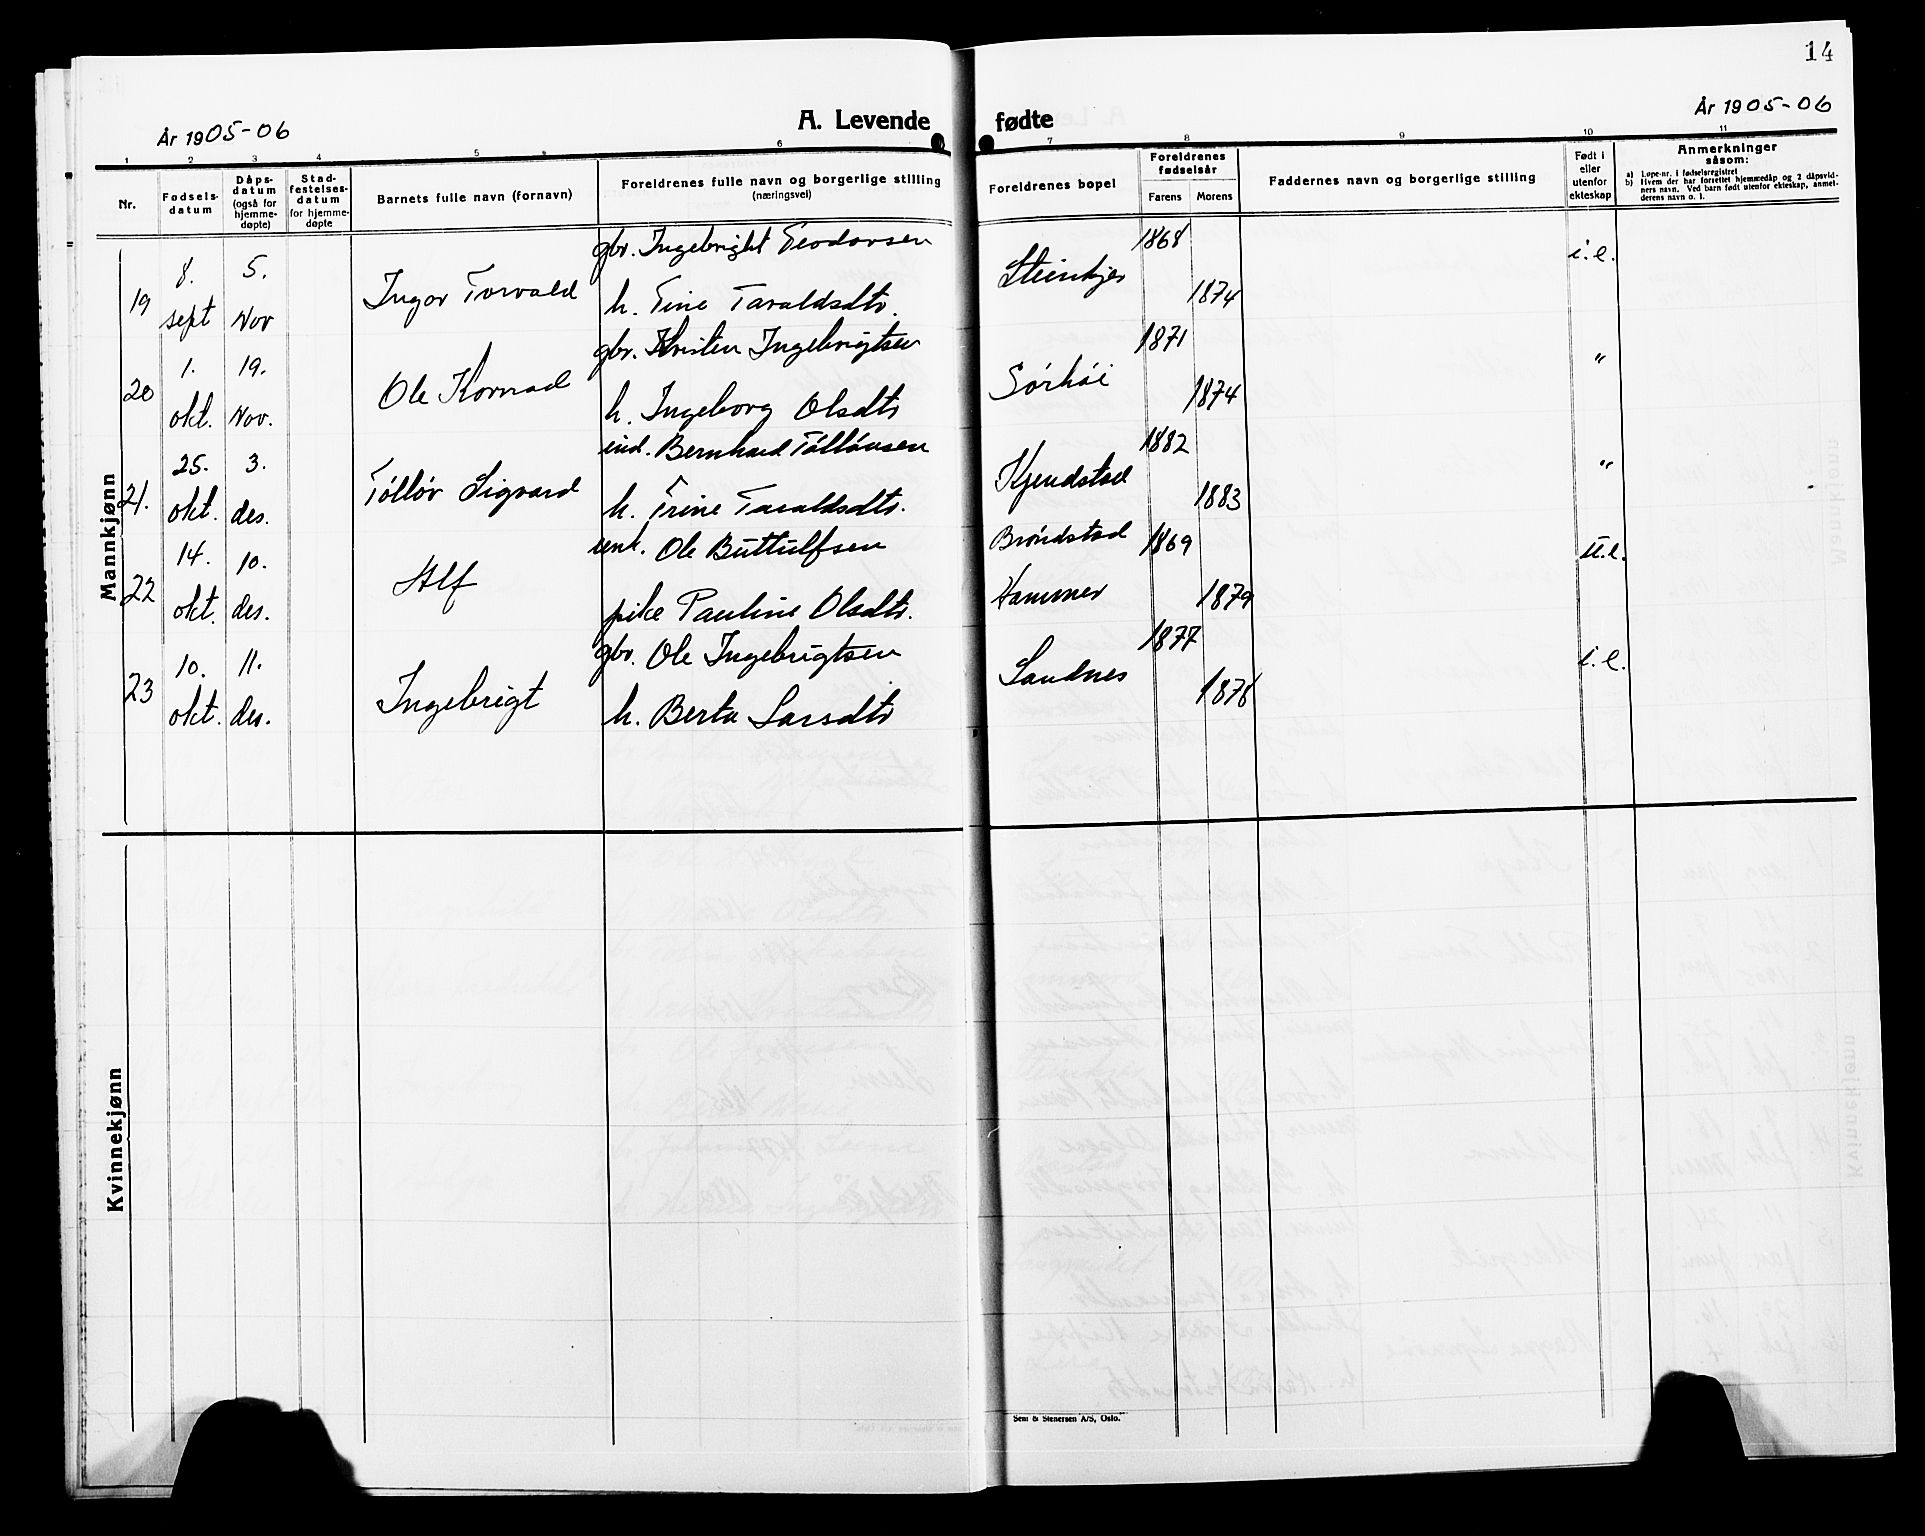 14
År 1905-06
A. Levende fødte
År 1905-06
1 2 3 4 5 6 7 8 9 10 11
Nr.
Fødsels-
datum
Dåps-
datum
(også for
hjemme-
døpte)
Stad-
festelses-
datum
for hjemme-
døpte
Barnets fulle navn (fornavn)
Foreldrenes fulle navn og borgerlige stilling
(næringsvei)
Foreldrenes bopel
Foreldrenes
fødselsår
Farens Morens
Faddernes navn og borgerlige stilling
Født i
eller
utenfor
ekteskap
Anmerkninger
såsom:
a) Løpe-nr. i fødselsregistret
b) Hvem der har forrettet hjemmedåp og 2 dåpsvid-
ners navn. Ved barn født utenfor ekteskap, anmel-
derens navn o. l.
Mannkjønn
19 8. sept 5. Nov Ingov Torvald
gbr. Ingebright Teodorsen Steinkjer 1868 i.e.
h. Tine Taraldsdtr. 1874
20 1. okt. 19. Nov. Ole Konrad
gbr. Kristen Ingebrigtsen Sørhøi 1871 "
h. Ingeborg Olsdtr 1874
21. 25. okt. 3. des. Tølløv Sigvard
ind. Bernhard Tølløvsen Kjendstad 1882 "
h. Trine Taraldsdtr. 1883
22 14. okt. 10. des. Alf
enk. Ole Buttulfsen Brøndstad 1869 u.e.
pike Pauline Olsdtr. Hammer 1879
23 10. okt. 11. des. Ingebrigt
gbr. Ole Ingebrigtsen Sandnes 1877 i.e.
h. Berta Larsdtr 1878
Kvinnekjønn
Sem & Stenersen A/S, Oslo.